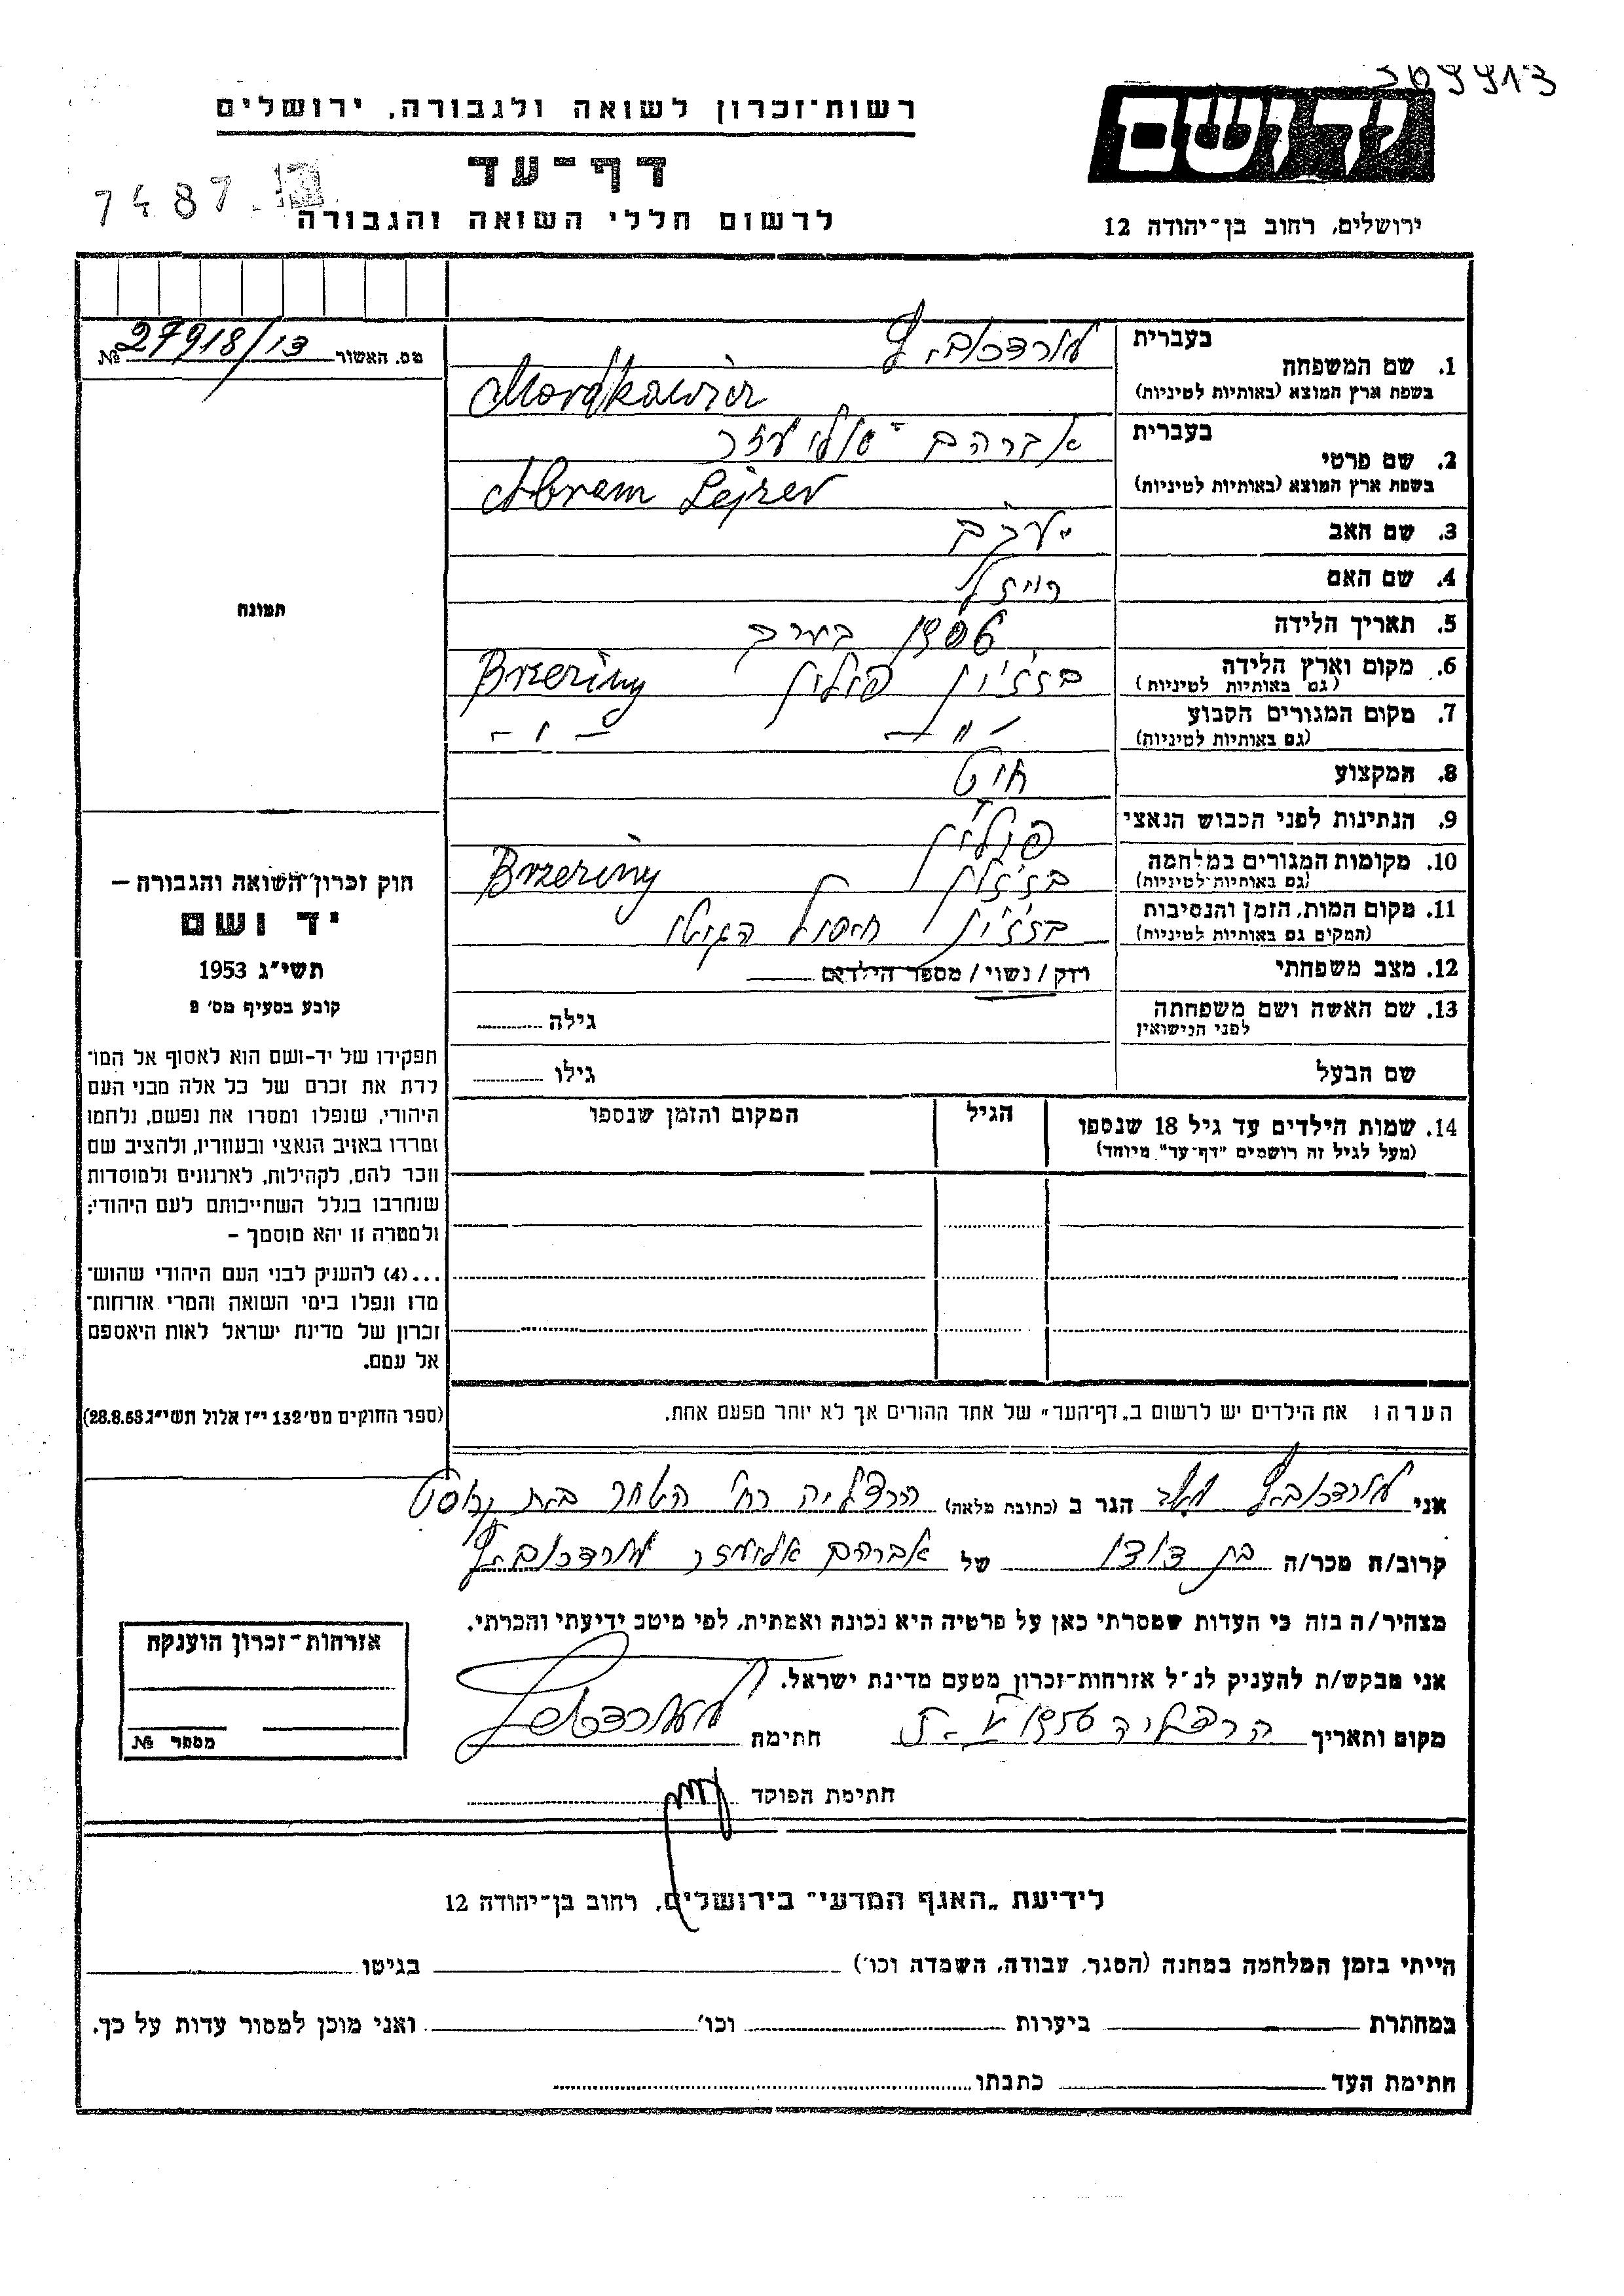 רשות־זכרון לשואה ולגבורה, ירושלים
דף־עד
לרשום חללי השואה והגבורה
7487
יד ושם
ירושלים, רחוב בן־יהודה 12
מס. האשור 27918/13 №
תמונה
1. שם המשפחה
בעברית
מורדכוביץ
בשפת ארץ המוצא (באותיות לטיניות)
Mordkowicz
2. שם פרטי
בעברית
אברהם
בשפת ארץ המוצא (באותיות לטיניות)
Abram Lejzer
3. שם האב יעקב
4. שם האם רייזל
5. תאריך הלידה
6. מקום וארץ הלידה פולין Brzeziny
(גם באותיות לטיניות)
7. מקום המגורים הקבוע - " -
(גם באותיות לטיניות)
8. המקצוע חיט
9. הנתינות לפני הכבוש הנאצי פולין
10. מקומות המגורים במלחמה Brzeziny
(גם באותיות לטיניות)
11. מקום המות, הזמן והנסיבות חיסול הגיטו
(המקום גם באותיות לטיניות)
12. מצב משפחתי רוק/נשוי/ מספר הילדים
13. שם האשה ושם משפחתה גילה
לפני הנישואין
שם הבעל גילו
14. שמות הילדים עד גיל 18 שנספו הגיל המקום והזמן שנספו
(מעל לגיל זה רושמים "דף־עד" מיוחד)
הערה: את הילדים יש לרשום ב"דף־העד" של אחד ההורים אך לא יותר מפעם אחת.
חוק זכרון השואה והגבורה –
יד ושם
תשי"ג 1953
קובע בסעיף מס' 9
תפקידו של יד-ושם הוא לאסוף אל המו־
לדת את זכרם של כל אלה מבני העם
היהודי, שנפלו ומסרו את נפשם, נלחמו
ומרדו באויב הנאצי ובעוזריו, ולהציב שם
וזכר להם, לקהילות, לארגונים ולמוסדות
שנחרבו בגלל השתייכותם לעם היהודי;
ולמטרה זו יהא מוסמך –
...(4) להעניק לבני העם היהודי שהוש־
מדו ונפלו בימי השואה והמרי אזרחות־
זכרון של מדינת ישראל לאות היאספם
אל עמם.
(ספר החוקים מס' 132 י"ז אלול תשי"ג 28.8.53)
אני מורדכוביץ הגר ב (כתובת מלאה) הרצליה רח'
קרוב/ת מכר/ה בן דודו של אברהם אליעזר מורדכוביץ
מצהיר/ה בזה כי העדות שמסרתי כאן על פרטיה היא נכונה ואמתית, לפי מיטב ידיעתי והכרתי.
אני מבקש/ת להעניק לנ"ל אזרחות־זכרון מטעם מדינת ישראל.
מקום ותאריך הרצליה חתימה
חתימת הפוקד
אזרחות־זכרון הוענקה
מספר №
לידיעת "האגף המדעי" בירושלים, רחוב בן־יהודה 12
הייתי בזמן המלחמה במחנה (הסגר, עבודה, השמדה וכו') בגיטו
במחתרת ביערות וכו' ואני מוכן למסור עדות על כך.
חתימת העד כתבתו